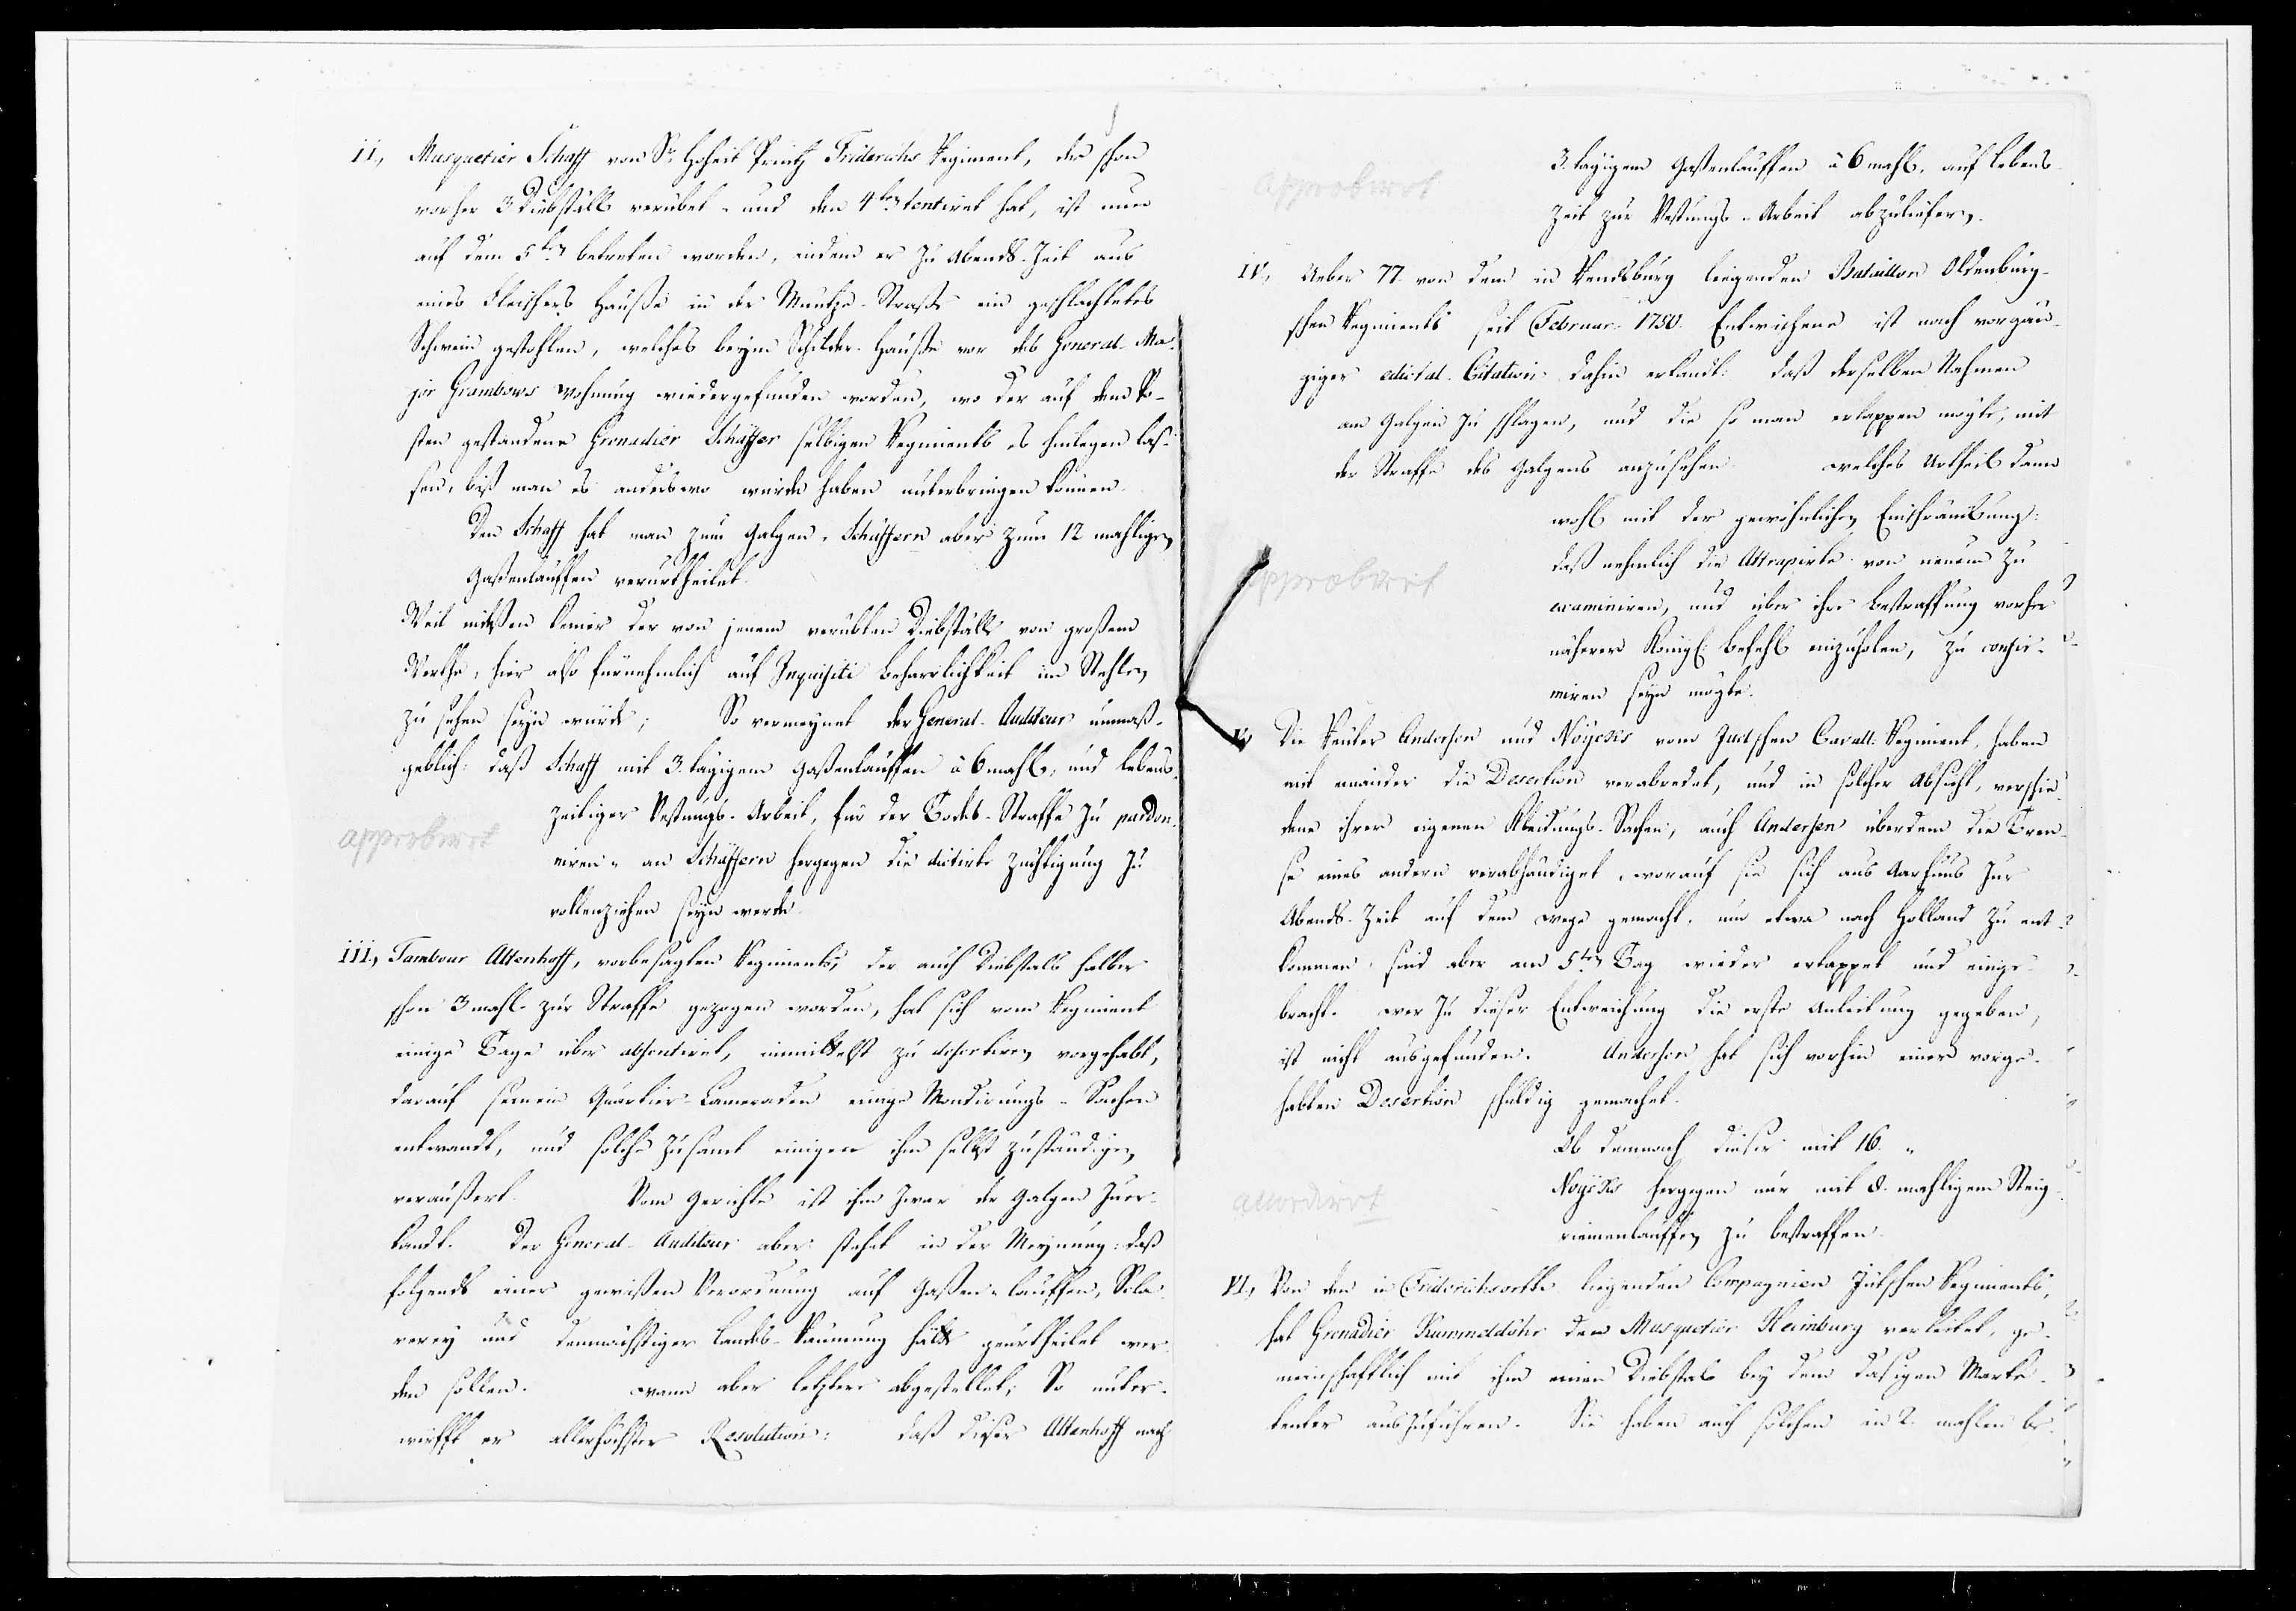 II, Musquetier Schaff von Sr. Hoheit Printz Friderichs Regiment, der schon
vorher 3 Diebställe verübet und den 4ten tentiret hat, ist nun
auf dem 5ten betreten worden, indem er zu Abends-Zeit aus
eines Fleischers Hauße in der Muntze-Straße ein geschlachtetes
Schwein gestohlen, welches beym Schilder-Hauße vor des General-Ma-
jor Grambows Wohnung wiedergefunden worden, wo der auf dem Po-
sten gestandene Grenadier Schäffer selbigen Regiments es hinlegen las-
sen, biß man es anderswo würde haben unterbringen können.
Den Schaff hat man zum Galgen, Schäffern aber zum 12 mahligen
Gaßenlauffen verurtheilet.
Weil indeßen keiner der von jenem verübten Diebställe von großem
Werthe, hier also fürnehmlich auf Inquisiti Beharrlichkeit im Stehlen
zu sehen seyn würde; So vermeynet der General-Auditeur unmaß-
geblich: daß Schaff mit 3.tägigem Gaßenlauffen à 6 mahl, und lebens-
zeitiger Vestungs-Arbeit, für der Todes-Straffe zu pardon-
niren, an Schäffern hergegen die dictirte Züchtigung zu
vollenziehen seyn werde.
approbirt
III, Tambour Altenhoff, vorbesagten Regiments, der auch Diebstals halber
schon 3 mahl zur Straffe gezogen worden, hat sich vom Regiment
einige Tage über absentiret, inmittelst zu desertiren vorgehabt,
darauf seinem Quartier-Cameraden einige Mondirungs-Sachen
entwandt, und solche zusamt einigen ihm selbst zuständigen
veräußert. Vom Gerichte ist ihm zwar der Galgen zuer-
kandt. Der General-Auditeur aber stehet in der Meynung: daß
folgends einer gewißen Verordnung auf Gaßen-lauffen, Scla-
verey und demnächstiger Landes-Räumung hätte geurtheilet wer-
den sollen. wann aber letztere abgestellet; So unter-
wirfft er allerhöchster Resolution: daß dieser Altenhoff nach
3.tägigem Gaßenlauffen à 6 mahl, auf Lebens-
Zeit zur Vestungs-Arbeit abzuliefern.
approbirt
IV, Ueber 77 von dem in Rendsburg liegenden Bataillon Oldenburg-
schen Regiments seit Februar. 1750. Entwichene ist nach vorgän-
giger edictal-Citation dahin erkandt: daß derselben Nahmen
am Galgen zu schlagen, und die so man ertappen mögte, mit
der Straffe des Galgens anzusehen. welches Urtheil dann
wohl mit der gewöhnlichen Einschränckung:
daß nehmlich die Attrapirte von neuem zu
examiniren, und über ihre Bestraffung vorher
näherer Königl. Befehl einzuholen, zu confir-
miren seyn mögte.
approbirt
V, Die Reuter Andersen und Noyeskes vom Jütschen Cavall. Regiment, haben
mit einander die Desertion verabredet, und in solcher Absicht, verschie-
dene ihrer eigenen Kleidungs-Sachen, auch Andersen überdem die Tren-
se eines andern verabhändiget, worauf sie sich aus Aarhuus zur
Abends-Zeit auf dem Wege gemacht, um etwa nach Holland zu ent-
kommen, sind aber am 5ten Tag wieder ertappet und einge-
bracht. wer zu dieser Entweichung die erste Anleitung gegeben,
ist nicht ausgefunden. Andersen hat sich vorhin einer vorge-
habten Desertion schuldig gemachet.
Ob demnach dieser mit 16.
hergegen nur mit 8. mahligem Steig-
riemenlauffen zu bestraffen.
accordirt
VI, Von den in Friderichsorthe liegenden Compagnien Jütschen Regiments,
hat Grenadier Kummeldöhr den Musquetier Heimburg verleitet, ge-
meinschafftlich mit ihm einen Diebstal bey dem dasigen Marke-
tenter auszuführen. Sie haben auch solchen in 2. mahlen be-